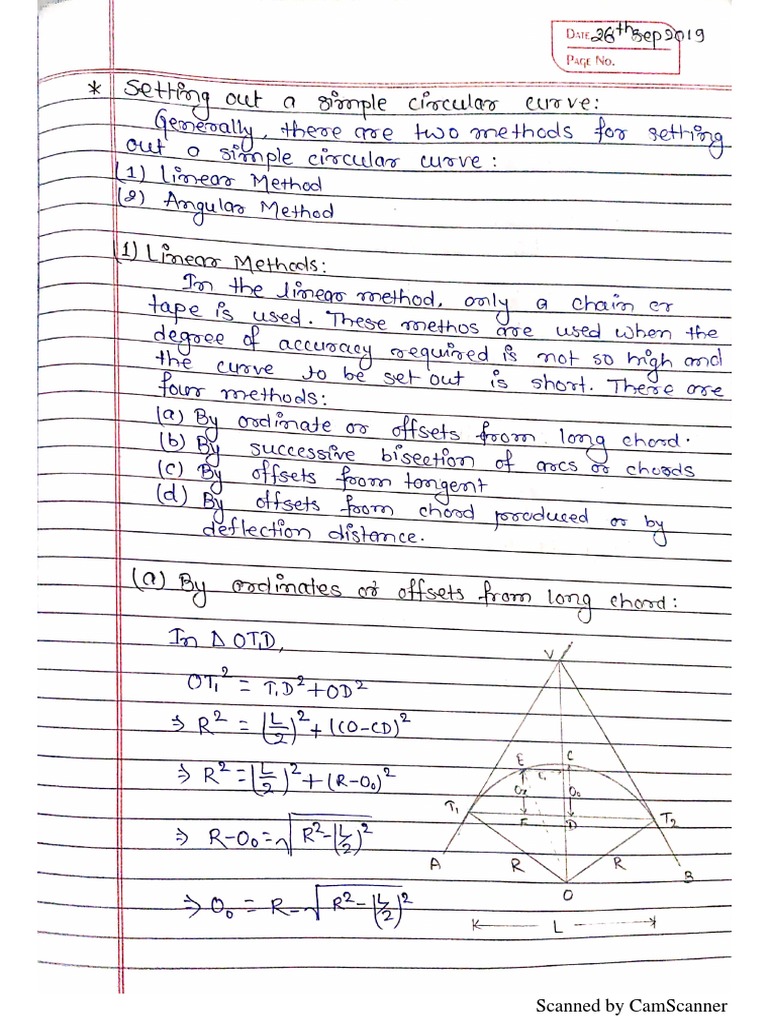 DATE 26th Sep 2019
PAGE NO.
* Setting out a simple circular curve:
Generally, there are two methods for setting
out a simple circular curve:
(1) Linear Method
(2) Angular Method
1) Linear Methods:
In the linear method, only a chain or
tape is used. These methos are used when the
degree of accuracy required is not so high and
the curve to be set out is short. There are
four methods:
(a) By ordinate or offsets from long chord.
(b) By successive bisection of arcs or chords
(c) By offsets from tangent
(d) By offsets from chord produced or by
deflection distance.
(a) By ordinates or offsets from long chord:
In Δ OT₁D,
OT₁² = T₁D² + OD²
⇒ R² = (L/2)² + (CO-CD)²
⇒ R² = (L/2)² + (R-O₀)²
⇒ R-O₀ = √R²-(L/2)²
⇒ O₀ = R-√R²-(L/2)²
V
E C
Oₓ O₀
T₁ F D T₂
A R R B
O
L
Scanned by CamScanner